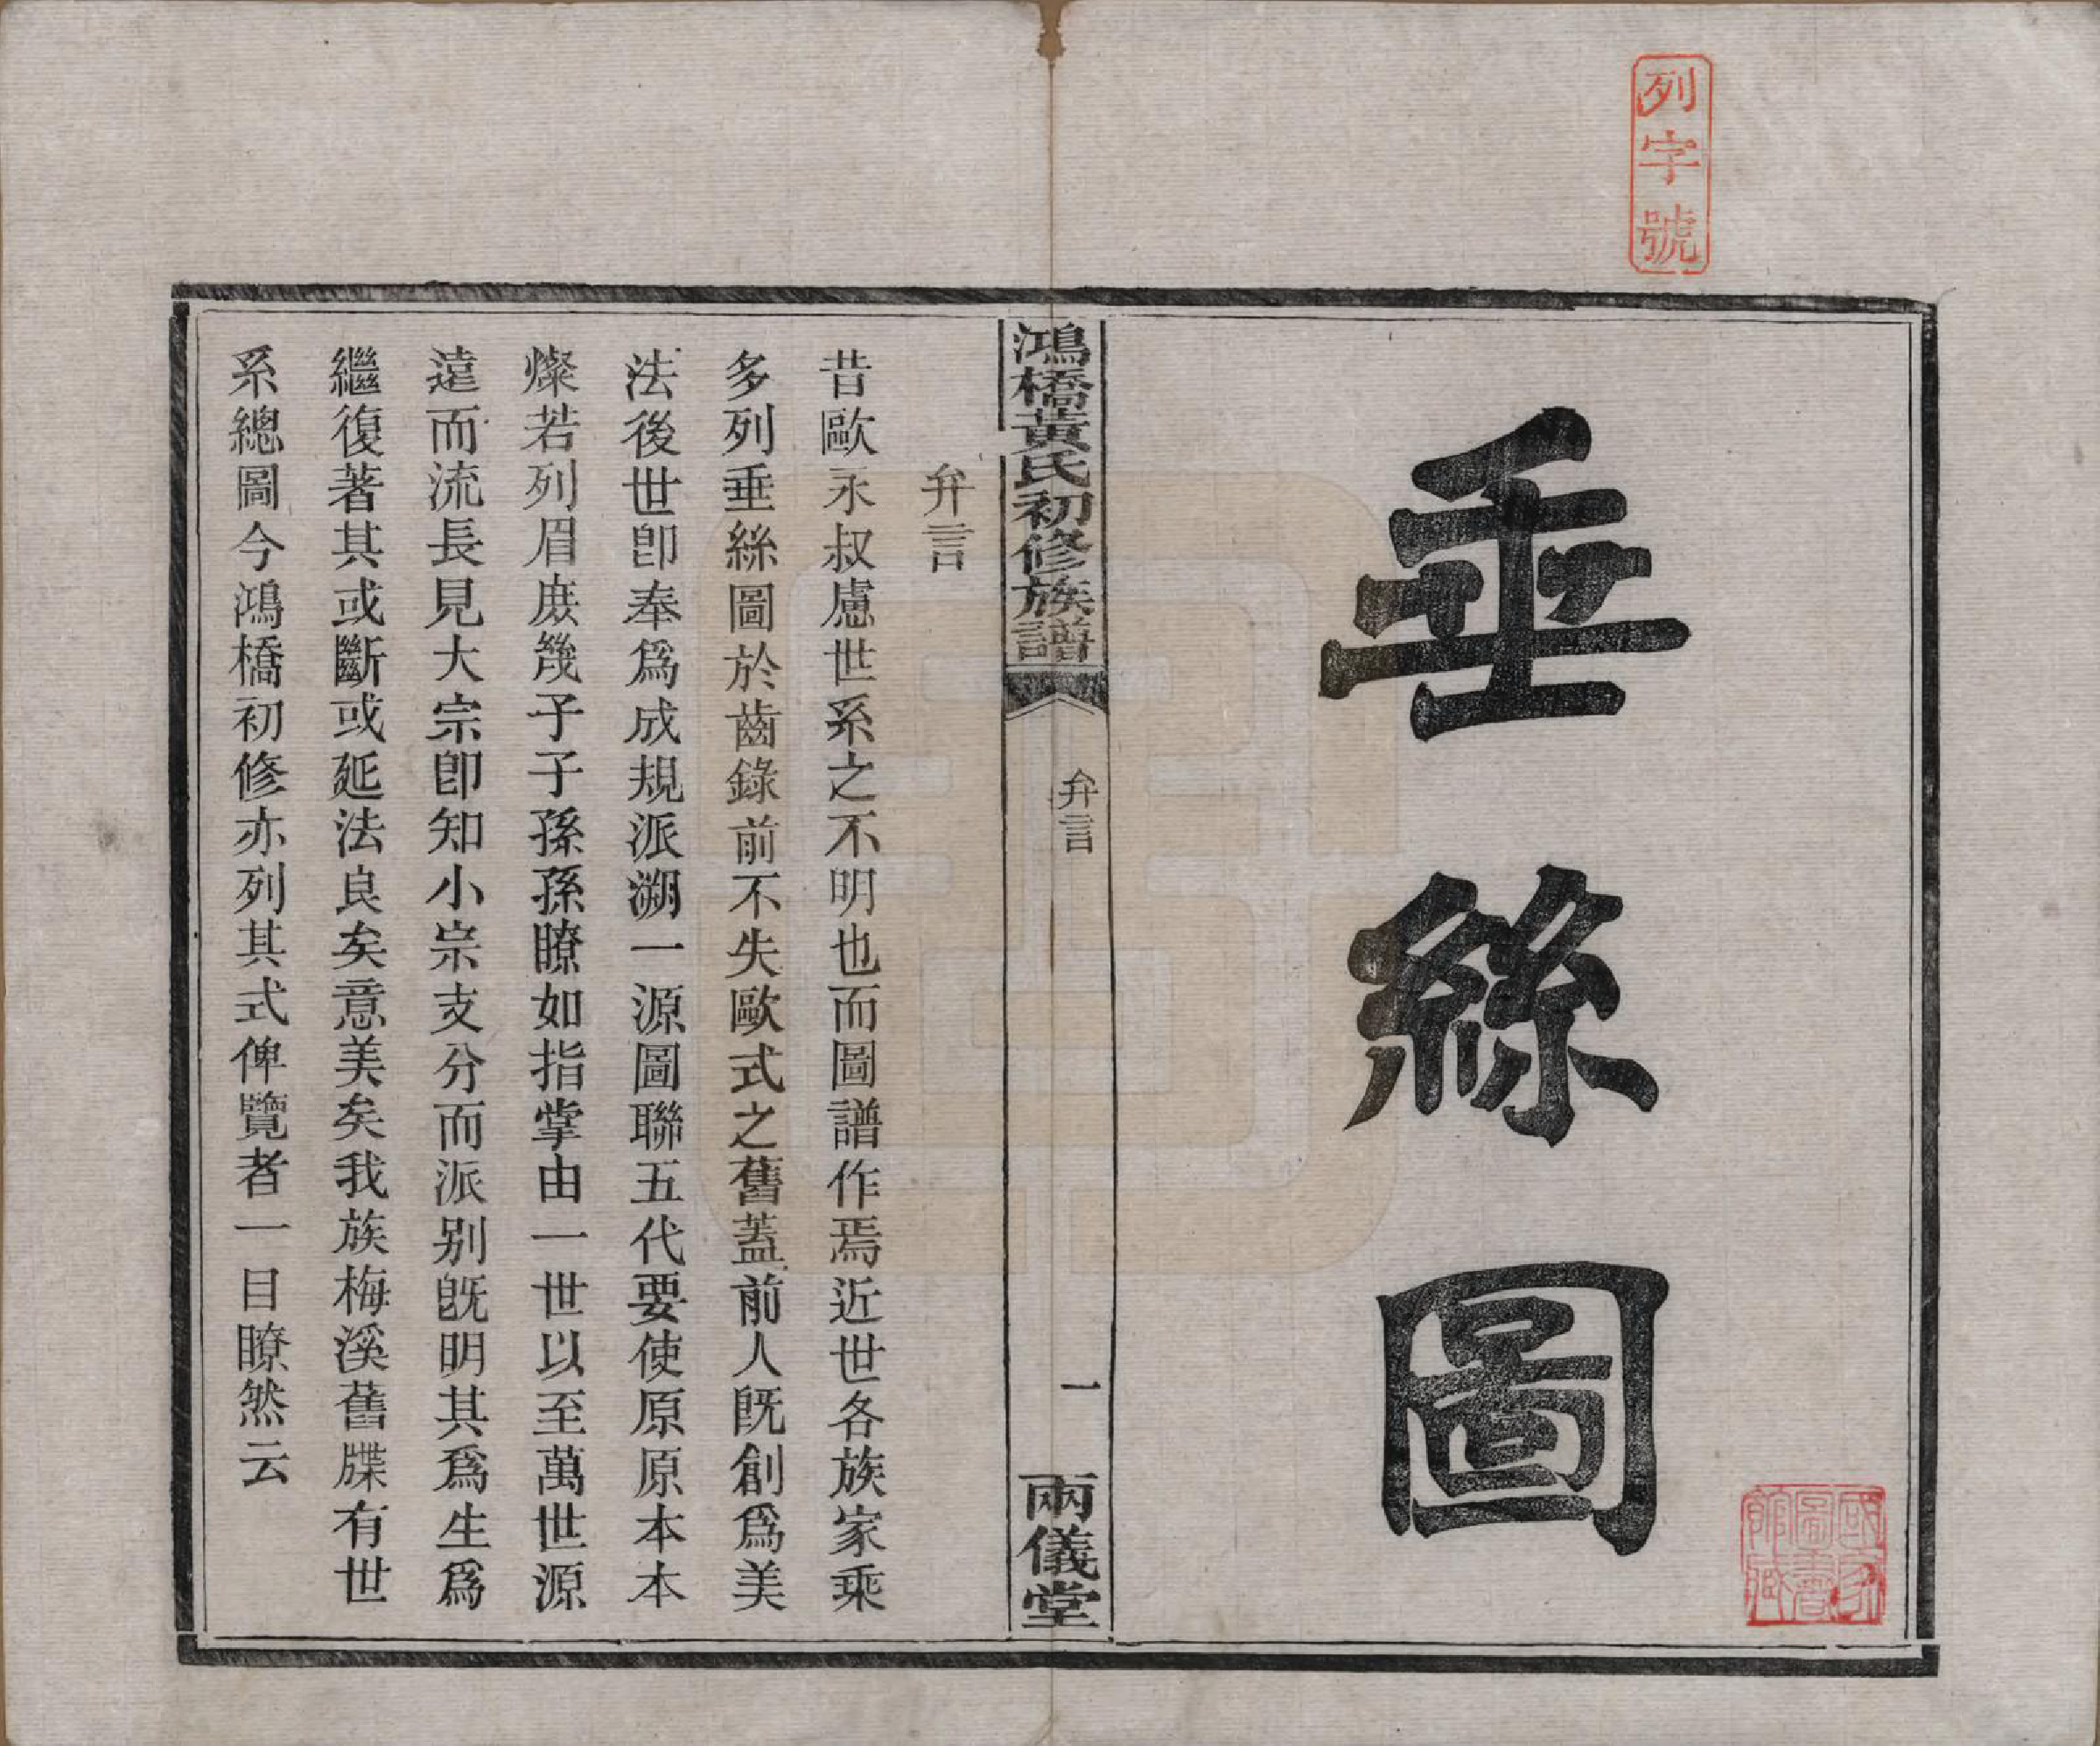 列字號
垂絲圖
國家圖書館藏
鴻橋黃氏初修族譜
弁言
一
兩儀堂
弁言
昔歐永叔慮世系之不明也而圖譜作焉近世各族家乘
多列垂絲圖於齒錄前不失歐式之舊蓋前人既創爲美
法後世卽奉爲成規派溯一源圖聯五代要使原原本本
燦若列眉庶幾子子孫孫瞭如指掌由一世以至萬世源
遠而流長見大宗卽知小宗支分而派别既明其爲生爲
繼復著其或斷或延法良矣意美矣我族梅溪舊牒有世
系總圖今鴻橋初修亦列其式俾覽者一目瞭然云